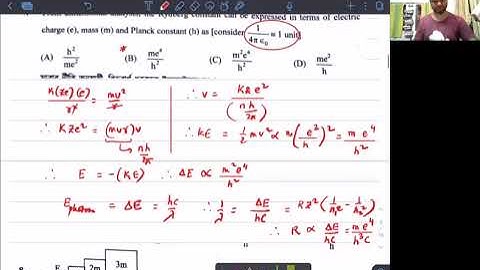 From dimensional analysis, the Rydberg constant can be expressed in terms of electric
charge (e), mass (m) and Planck constant (h) as [consider 1/4πε₀ = 1 unit]
(A) h²/me² *(B) me⁴/h² (C) m²e⁴/h² (D) me²/h
K(ze)(e)/r² = mv²/r
∴ Kze² = (mvr)v
→ nh/2π
∴ v = Kze²/(nh/2π)
∴ KE = 1/2 mv² ∝ m(e²/h)² = me⁴/h²
∴ E = -(KE) ∴ ΔE ∝ me⁴/h²
E photon = ΔE = hc/λ ∴ 1/λ = ΔE/hc = Rz²(1/n₁² - 1/n₂²)
∴ R ∝ ΔE/hc = me⁴/h³c
11
8
F 2m 3m